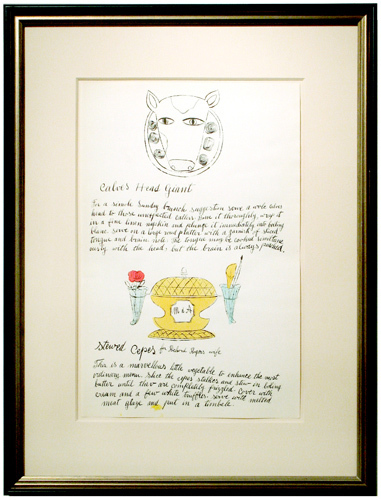 Calves Head
For a simple Sunday brunch suggestion serve a whole calves
head to those unexpected callers. bone it thoroughly, wrap it
in a fine linen napkin and plunge it immediately into boiling
blanc. serve on a large round platter with a garnish of sliced
tongue and brain. note: the tongue may be cooked
with the head: but the brain is always poached.
Stewed Cepes for wife
This is a marvellous little vegetable to enhance the most
ordinary menu. slice the cepes stalks and stew in boling
butter until they are completely frizzled. cover with
cream and a few white truffles. serve with melted
meat glaze and put in a timbale